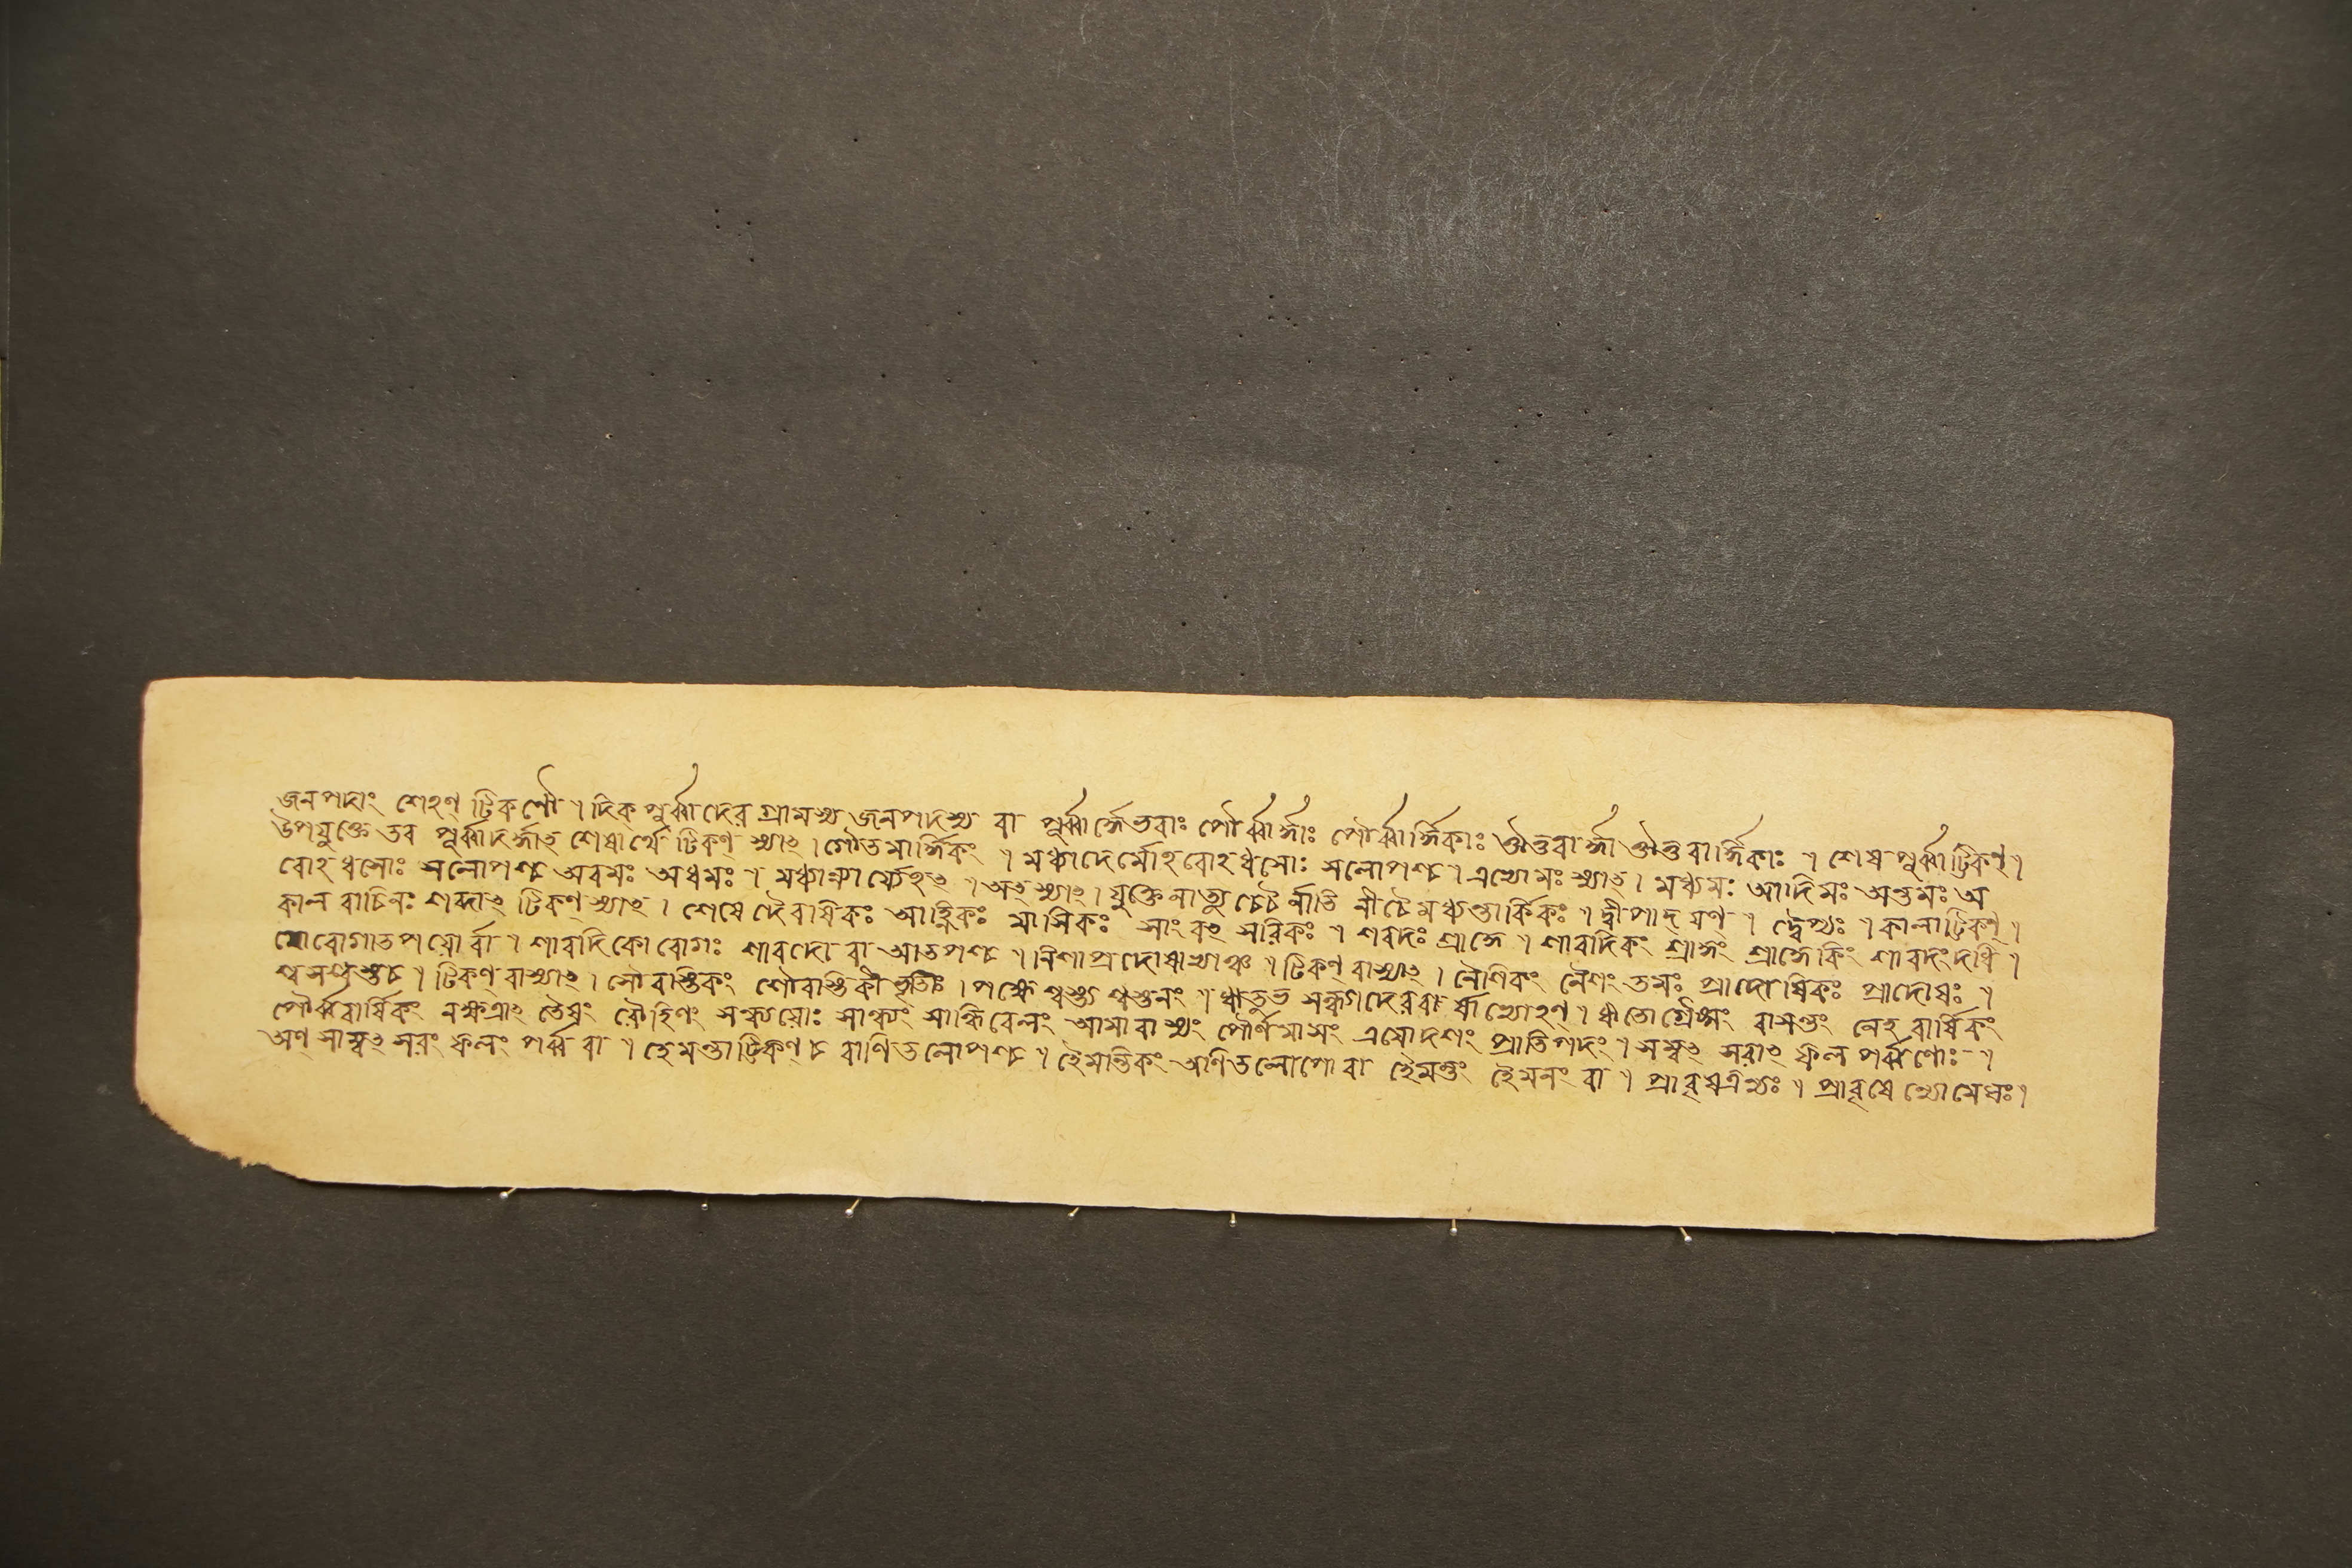 জনপদাং শেহণ্ টিকণৌ । দিক পূর্ব্বাদের গ্রামস্য জনপদস্য বা পূর্ব্বার্দ্ধেভবাঃ পৌর্ব্বার্দ্ধাঃ পৌর্ব্বার্দ্ধিকাঃ ঔত্তরার্দ্ধা ঔত্তরার্দ্ধিকাঃ । শেষ পূর্ব্বাট্টিকণ্ ।
উপযুক্তে তর পূর্ব্বাদর্দ্ধাৎ শেষার্থে টিকণ্ স্যাৎ । গৌতমার্দ্ধিকং । মধ্যাদের্মোহবোহধসোঃ সলোপশ্চ । এভ্যোমঃ স্যাৎ । মধ্যমঃ আদিমঃ অন্তমঃ অ
বোহধসোঃ সলোপশ্চ অবমঃ অধমঃ । অৎ স্যাৎ । যুক্তে নাত্যু । দ্বীপাদ যণ্ । দ্বৈপ্যঃ । কালাট্টিকণ্ ।
কাল বাচিনঃ শব্দাৎ টিকণ্ স্যাৎ । শেষে দৈবাষিকঃ আহ্নিকঃ মাসিকঃ সাংবৎসরিকঃ । শরদঃ শ্রাদ্ধে । শারদিকং শ্রাদ্ধং শ্রাদ্ধেকিং শারদংদধি ।
রোগাতপয়োর্বা । শারদিকো রোগঃ শারদো বা আতপশ্চ । নিশাপ্রদোষাভ্যাঞ্চ । টিকণ্ বাস্যাৎ । নৈশিকং নৈশং তমঃ প্রাদোষিকঃ প্রাদোষঃ ।
শ্বসস্তুশ্চ । টিকণ্ বাস্যাৎ । সৌবাস্তিকং শৌবাস্তিকী । পক্ষে শ্বস্ত্য শ্বস্তনং । সন্ধ্যাদেরবা র্বাভ্যোহণ্ । বাসন্তং নেহ বার্ষিকং
পৌর্ব্ববার্ষিকং নক্ষত্রাৎ তৈষং রৌহিণং সন্ধ্যায়োঃ সান্ধ্যং সান্ধিবেলং আমাবাস্যং পৌর্ণমাসং ত্রয়োদশং প্রাতিপদং । সম্বৎ সরাৎ ফল পর্ব্বণোঃ ।
অণ্ সাম্বৎ সরং ফলং পর্ব্ব বা । হেমন্তাট্টিকণ্ চ বাণিতলোপশ্চ । হৈমন্তিকং অণিতলোপো বা হৈমন্তং হৈমনং বা । প্রাবৃষএণ্যঃ । প্রাবৃষেণ্যোমেঘঃ ।